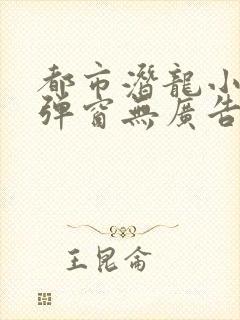 都市潛龍小
彈窗無廣告
王昆侖